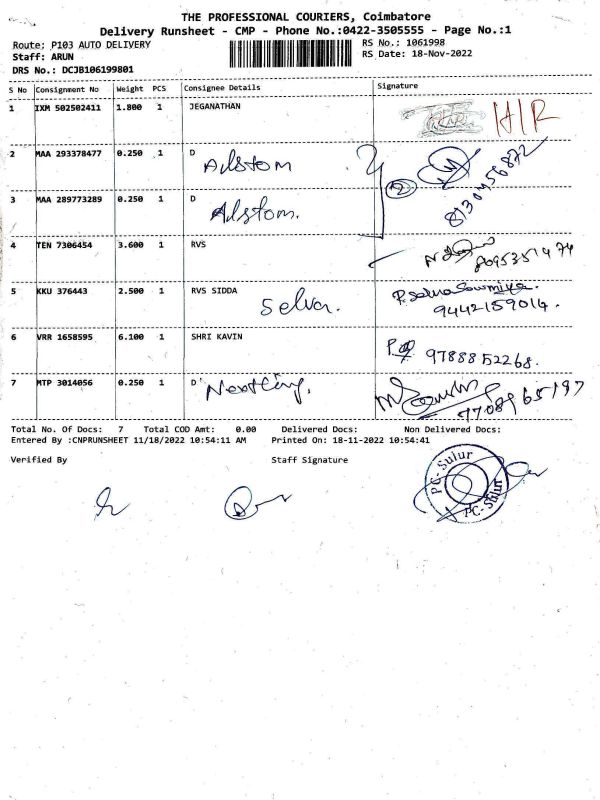 THE PROFESSIONAL COURIERS, Coimbatore
Delivery Runsheet - CMP - Phone No.:0422-3505555 - Page No.:1
Route: P103 AUTO DELIVERY RS No.: 1061998
Staff: ARUN RS Date: 18-Nov-2022
DRS No.: DCJB106199801
S No Consignment No Weight PCS Consignee Details Signature
1 IXM 502502411 1.800 1 JEGANATHAN H/R
2 MAA 293378477 0.250 1 D Alstom
3 MAA 289773289 0.250 1 D Alstom. 2
4 TEN 7306454 3.600 1 RVS
5 KKU 376443 2.500 1 RVS SIDDA Selva. 9442159014.
6 VRR 1658595 6.100 1 SHRI KAVIN 9788852268.
7 MTP 3014056 0.250 1 D
Total No. Of Docs: 7 Total COD Amt: 0.00 Delivered Docs: Non Delivered Docs:
Entered By :CNPRUNSHEET 11/18/2022 10:54:11 AM Printed On: 18-11-2022 10:54:41
Verified By Staff Signature
PC-Sulur
PC-Sulur